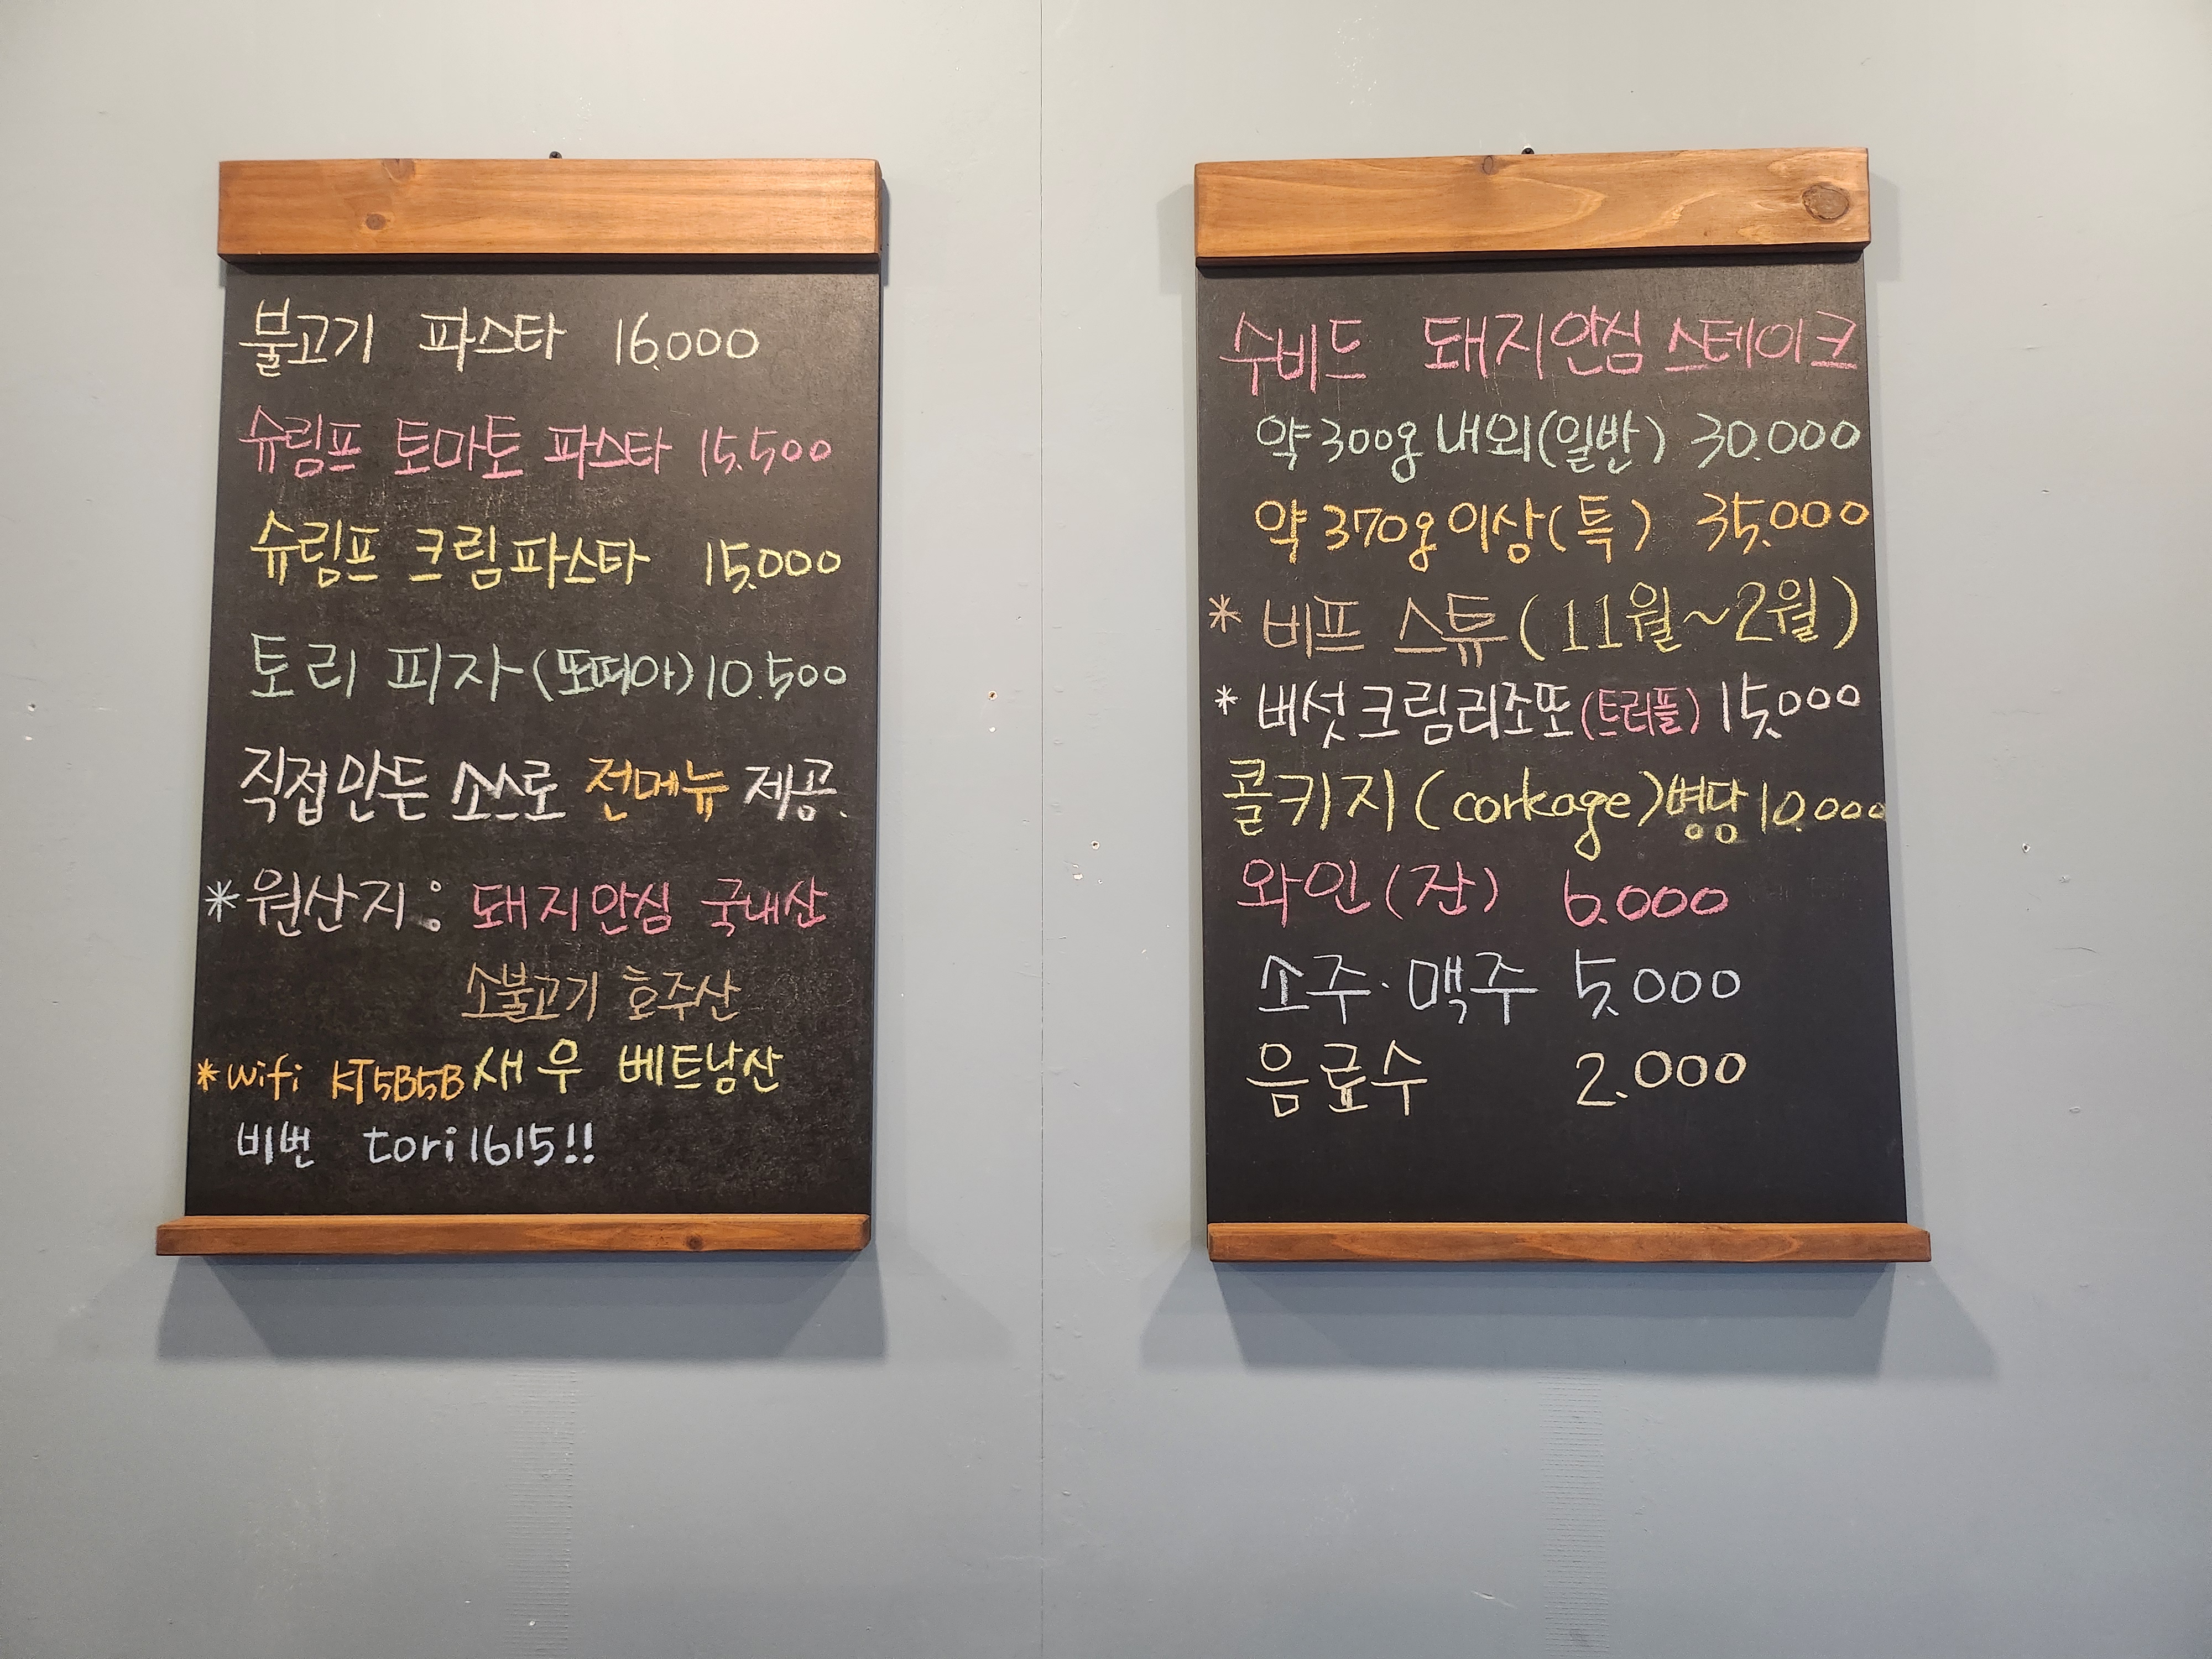 불고기 파스타 16,000
슈림프 토마토 파스타 15,500
슈림프 크림파스타 15,000
토리 피자(또띠아) 10.500
직접만든 소스로 전메뉴 제공.
*원산지: 돼지안심 국내산
소불고기 호주산
새우 베트남산
*wifi KT5B5B
비번 tori1615!!
수비드 돼지안심 스테이크
약 300g 내외(일반) 30.000
약 370g 이상(특) 35,000
* 비프 스튜(11월~2월)
* 버섯크림리조또(트러플) 15,000
콜키지(corkage)병당 10.000
와인(잔) 6.000
소주·맥주 5,000
음료수 2.000